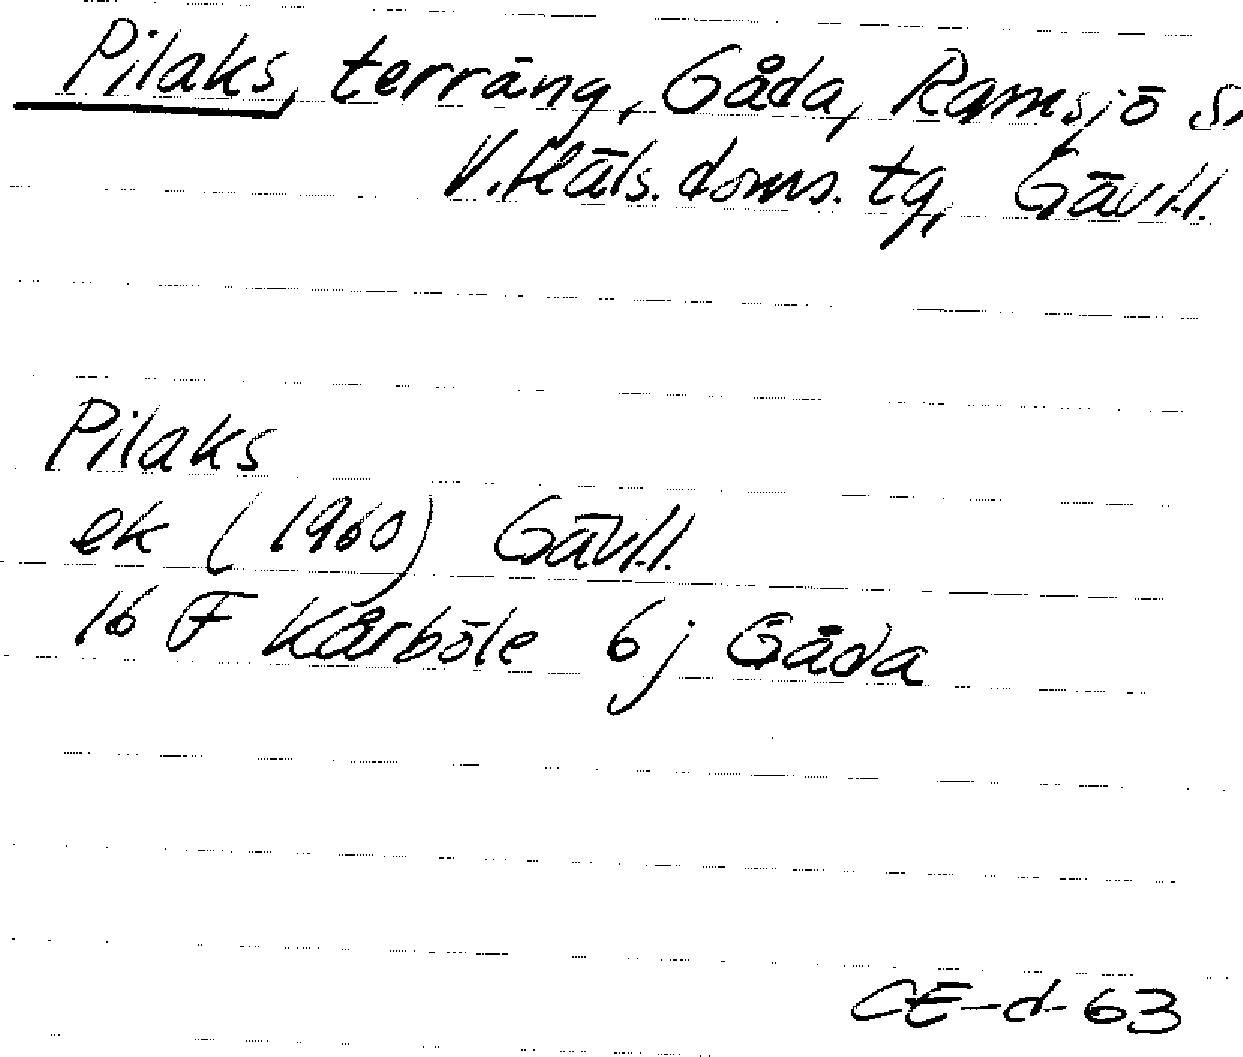 Pilaks, terräng, Gåda, Ramsjö s,
V. Häls. doms. tg, Gävl.l.
Pilaks
ek (1960) Gävl.l.
16 F Kårböle 6j Gåda
CE-d-63